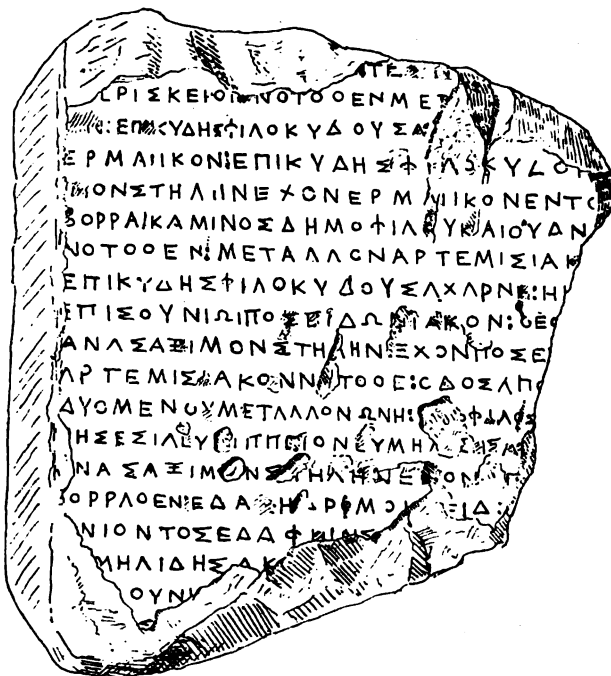 ΤΕ
ΕΡΙΣΚΕΙΟΙ ΝΟΤΟΘΕΝΜΕΤ
:ΕΠΙΚΥΔΗΣΦΙΛΟΚΥΔΟΥΣΑ
ΕΡΜΑΙΙΚΟΝ:ΕΠΙΚΥΔΗΣΦΙΛΟΚΥΔΟΥ
ΙΜΟΝΣΤΗΛΗΝΕΧΟΝΕΡΜΑΙΙΚΟΝΕΝΤΟ
ΒΟΡΡΑΙΚΑΜΙΝΟΣΔΗΜΟΦΙΛΟΥΚΑΙΟΥΔΝ
ΝΟΤΟΘΕΝ:ΜΕΤΑΛΛΟΝΑΡΤΕΜΙΣΙΑΚ
ΕΠΙΚΥΔΗΣΦΙΛΟΚΥΔΟΥΣΑΧΑΡΝΕ:Η
ΕΠΙΣΟΥΝΙΩΙΠΟΣΕΙΔΩΝΙΑΚΟΝ:ΘΕΟ
ΑΝΑΣΑΞΙΜΟΝΣΤΗΛΗΝΕΧΟΝΠΟΣΕ
ΑΡΤΕΜΙΣΙΑΚΟΝΝΟΤΟΘΕ:ΟΔΟΣΑΠΟ
ΔΥΟΜΕΝΟΥΜΕΤΑΛΛΟΝΩΝΗ: ΟΦΙΛΟΣ
ΗΣΕΣΙΛΕΥ ΙΠΠΕΙΟΝΕΥΜΗΛ ΣΗΣ
ΝΑΣΑΞΙΜΟΝΣΤΗΛΗΝΕΧΟΝ
ΒΟΡΡΑΘΕΝΕΔΑ Η ΡΜΟ ΕΙΔ:
ΝΙΟΝΤΟΣΕΔΑΦ
ΜΗΛΙΔΗΣΑΚ
ΟΥΝΙ